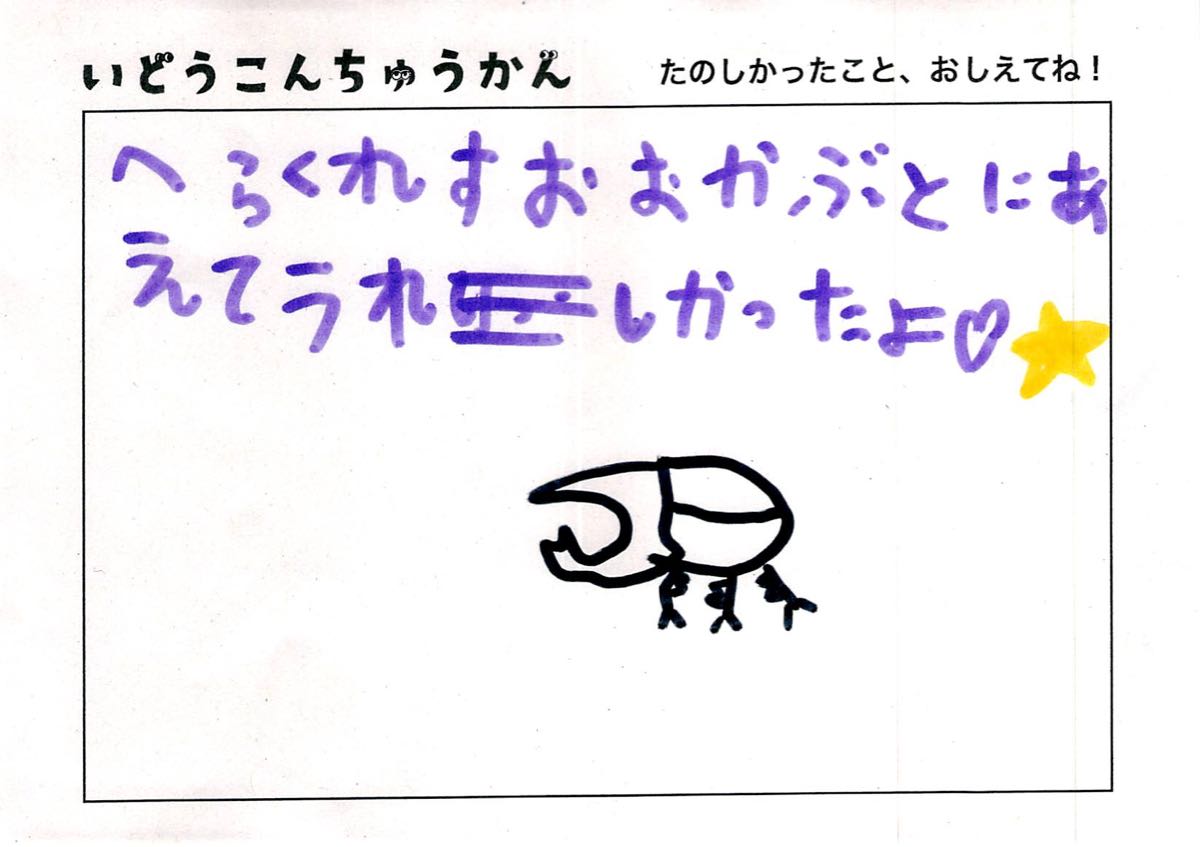 いどうこんちゅうかん
たのしかったこと、おしえてね！
へらくれすおおかぶとにあ
えてうれしかったよ♡